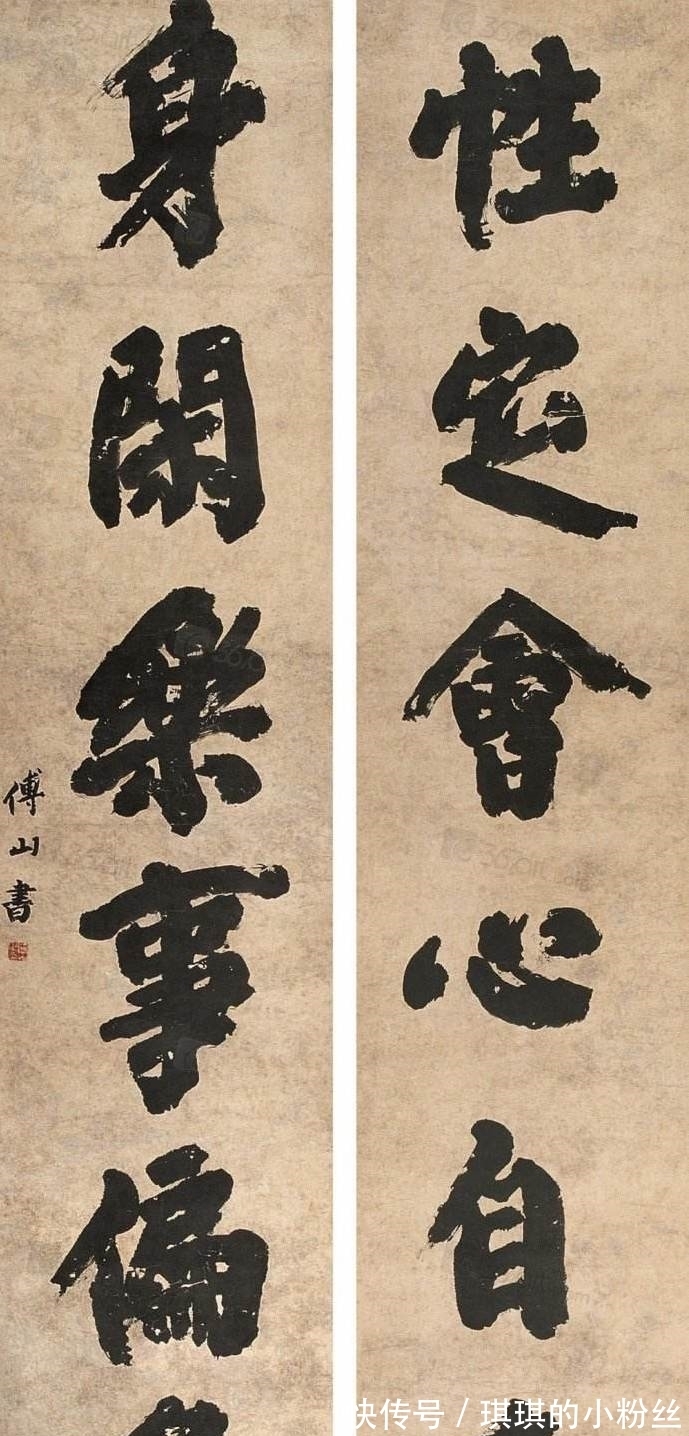 性定會心自
身閑樂事偏
傅山書
快传号/琪琪的小粉丝